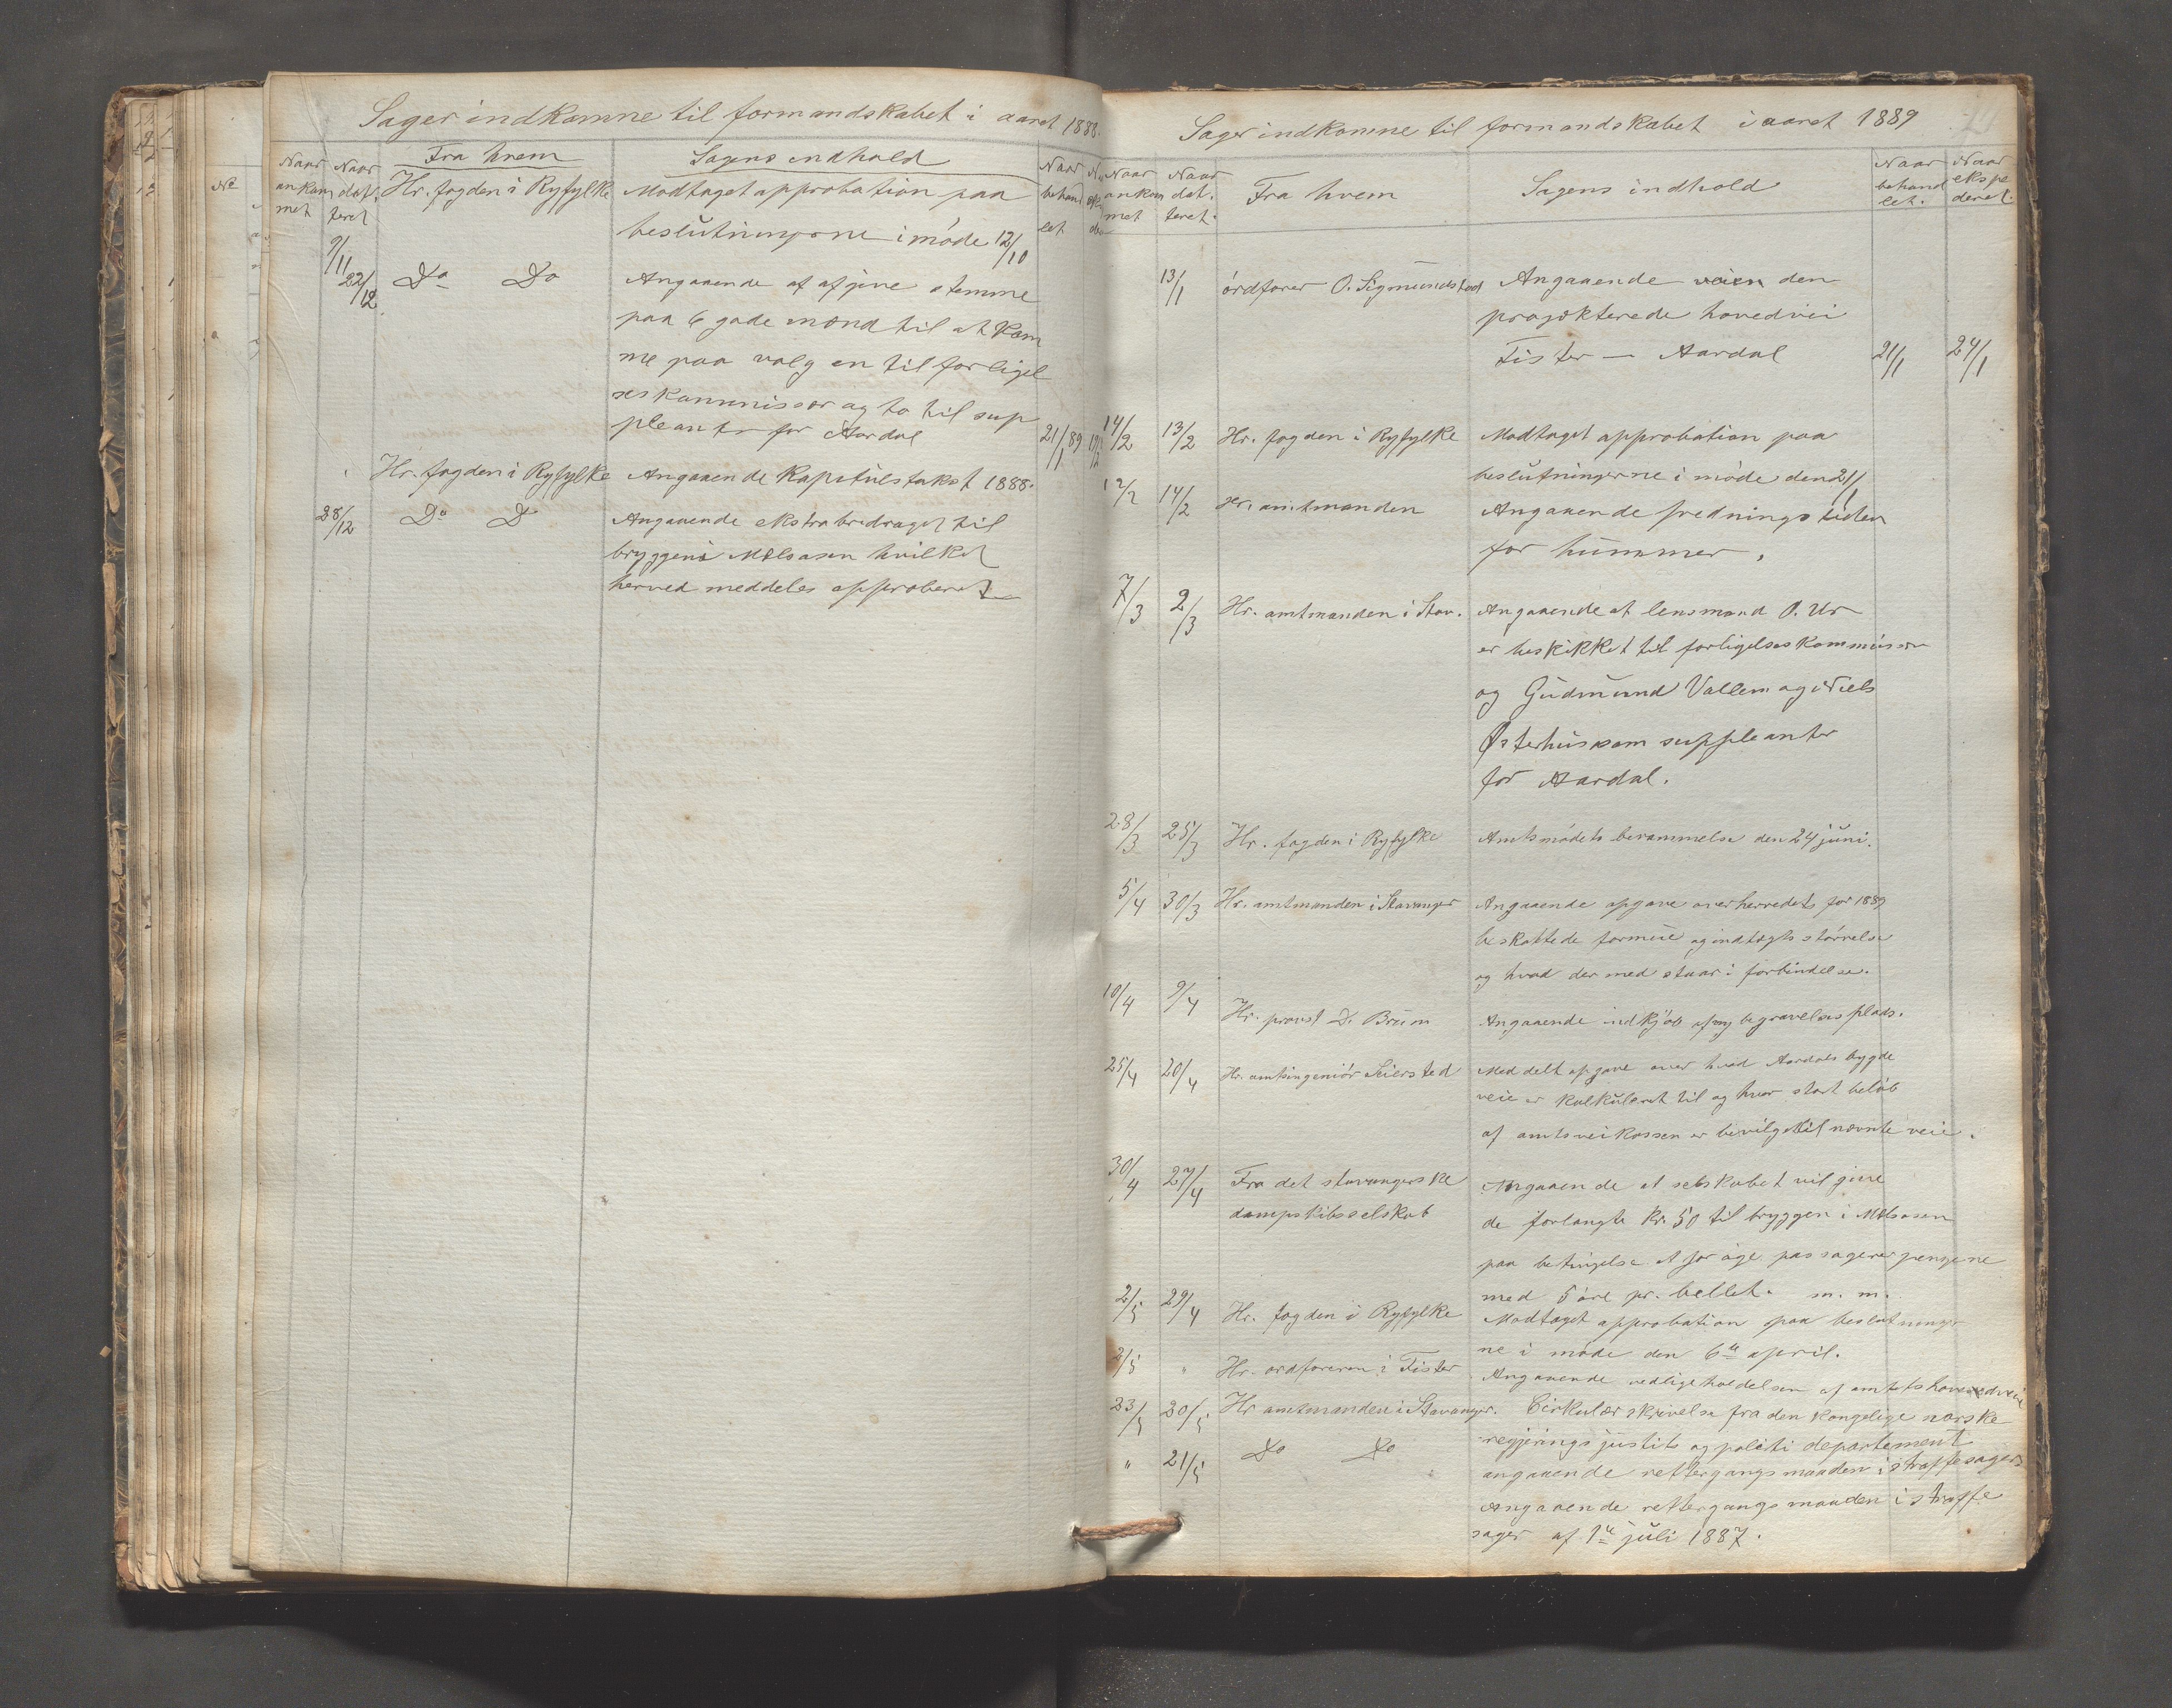 Sager indkomne til formandskabet i aaret 1888.
Naar ankommet
Naar datteret
Fra hvem
Sagens indhold
Naar behandlet
9/11
Hr. fogden i Ryfylke
Modtaget approbation paa
beslutningerne i møde 12/10
22/12
Do Do
Angaaende at afgive stemme
paa 6 gode mænd til at kom
me paa valg en til forligel
seskommissær og to til sup
pleanter for Aardal
21/1 89
Hr. fogden i Ryfylke
Angaaende Kapitulstakst 1888.
28/12
Do Do
Angaaende ekstrabidraget til
bryggen i hvilket
herved meddeles approberet
Sager indkomne til formandskabet i aaret 1889
Naar ankommet
Naar datteret.
Fra hvem
Sagens indhold
Naar behandlet.
Naar ekspederet.
13/1
ordfører O. Sigmundstad
Angaaende veien den
projekterede hovedvei
Fister — Aardal
21/1
24/1
14/2
13/2
Hr. fogden i Ryfylke
Modtaget approbation paa
beslutningerne i møde den 21/1
14/2
Hr. amtmanden
Angaaende fredningstiden
for hummer.
7/3
2/3
Hr. amtmanden i Stav.
Angaaende at lensmand O. Ur
er beskikket til forligelseskommissær
og Gudmund Vallem og Niels
Østerhus som suppleanter
for Aardal.
28/3
25/3
Hr. fogden i Ryfylke
Amtsmødets berammelse den 24 juni.
5/4
30/3
Hr. amtmanden i Stavanger
Angaaende opgave over herredets for 1889
beskattede formue og indtægts størrelse
og hvad der med staar i forbindelse.
10/4
9/4
Hr. provst D. Bruun
Angaaende indkjøb af ny begravelsesplads.
25/4
20/4
Hr. amtsingeniør Seiersted
Meddelt opgave over hvad Aardals bygde
veie er kalkuleret til og hvor stort beløb
af amtsveikassen er bevilget til nævnte veie.
30/4
27/4
Fra det stavangerske
dampskibsselskab
Angaaende at selskabet vil give
de forlangte kr. 50 til bryggen i
paa betingelse at forøge passagererpengene
med 5 øre pr. billet. m. m.
2/5
29/4
Hr. fogden i Ryfylke
Modtaget approbation paa beslutninger
ne i møde den 6te april.
2/5
"
Hr. ordføreren i Fister
Angaaende vedligeholdelsen af amtets hovedveie
23/5
20/5
Hr amtmanden i Stavanger.
Cirkulær skrivelse fra den kongelige norske
regjerings justits og politi departement
angaaende rettergangsmaaden i straffesager
"
21/5
Do Do
Angaaende rettergangsmaaden i straffe
sager af 1te juli 1887.